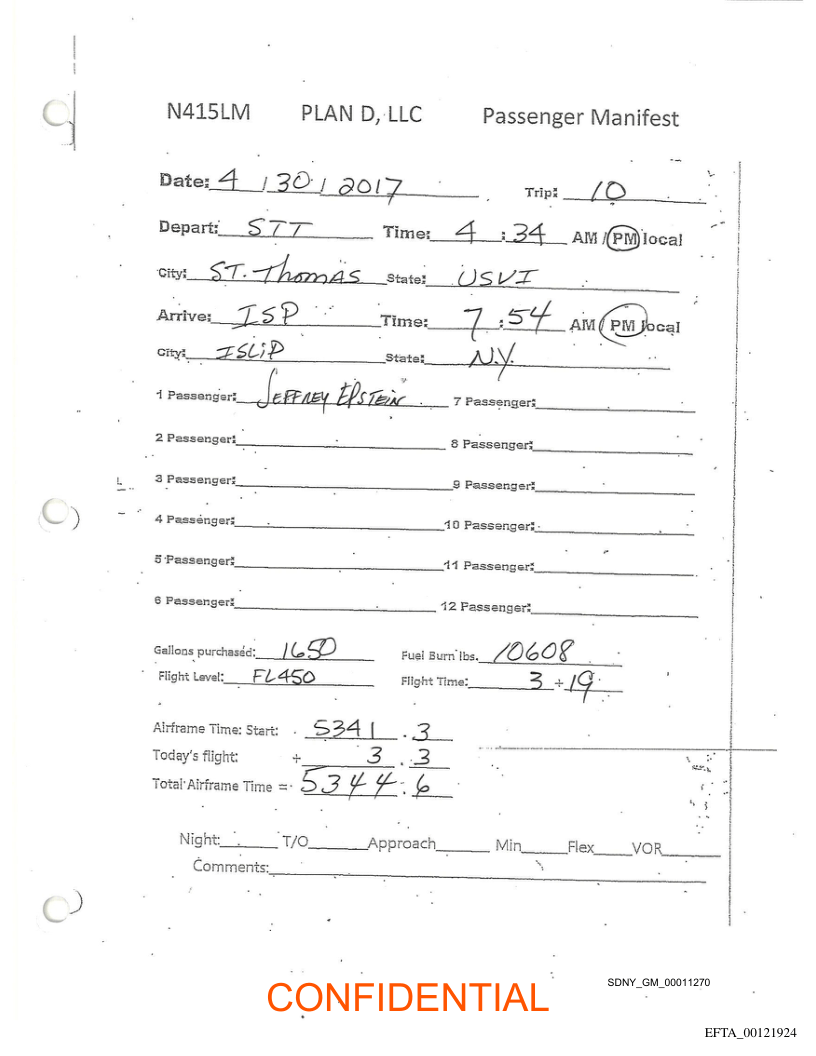 N415LM PLAN D, LLC Passenger Manifest
Date: 4 / 30 / 2017 Trip: 10
Depart: STT Time: 4 : 34 AM / PM local
City: ST. Thomas State: USVI
Arrive: ISP Time: 7 : 54 AM / PM local
City: ISLIP State: N.Y.
1 Passenger: JEFFREY EPSTEIN 7 Passenger:
2 Passenger: 8 Passenger:
3 Passenger: 9 Passenger:
4 Passenger: 10 Passenger:
5 Passenger: 11 Passenger:
6 Passenger: 12 Passenger:
Gallons purchased: 1650 Fuel Burn lbs. 10608
Flight Level: FL450 Flight Time: 3 + 19
Airframe Time: Start: 5341 . 3
Today's flight: + 3 . 3
Total Airframe Time = 5344 . 6
Night: T/O Approach Min Flex VOR
Comments:
SDNY_GM_00011270
CONFIDENTIAL
EFTA_00121924